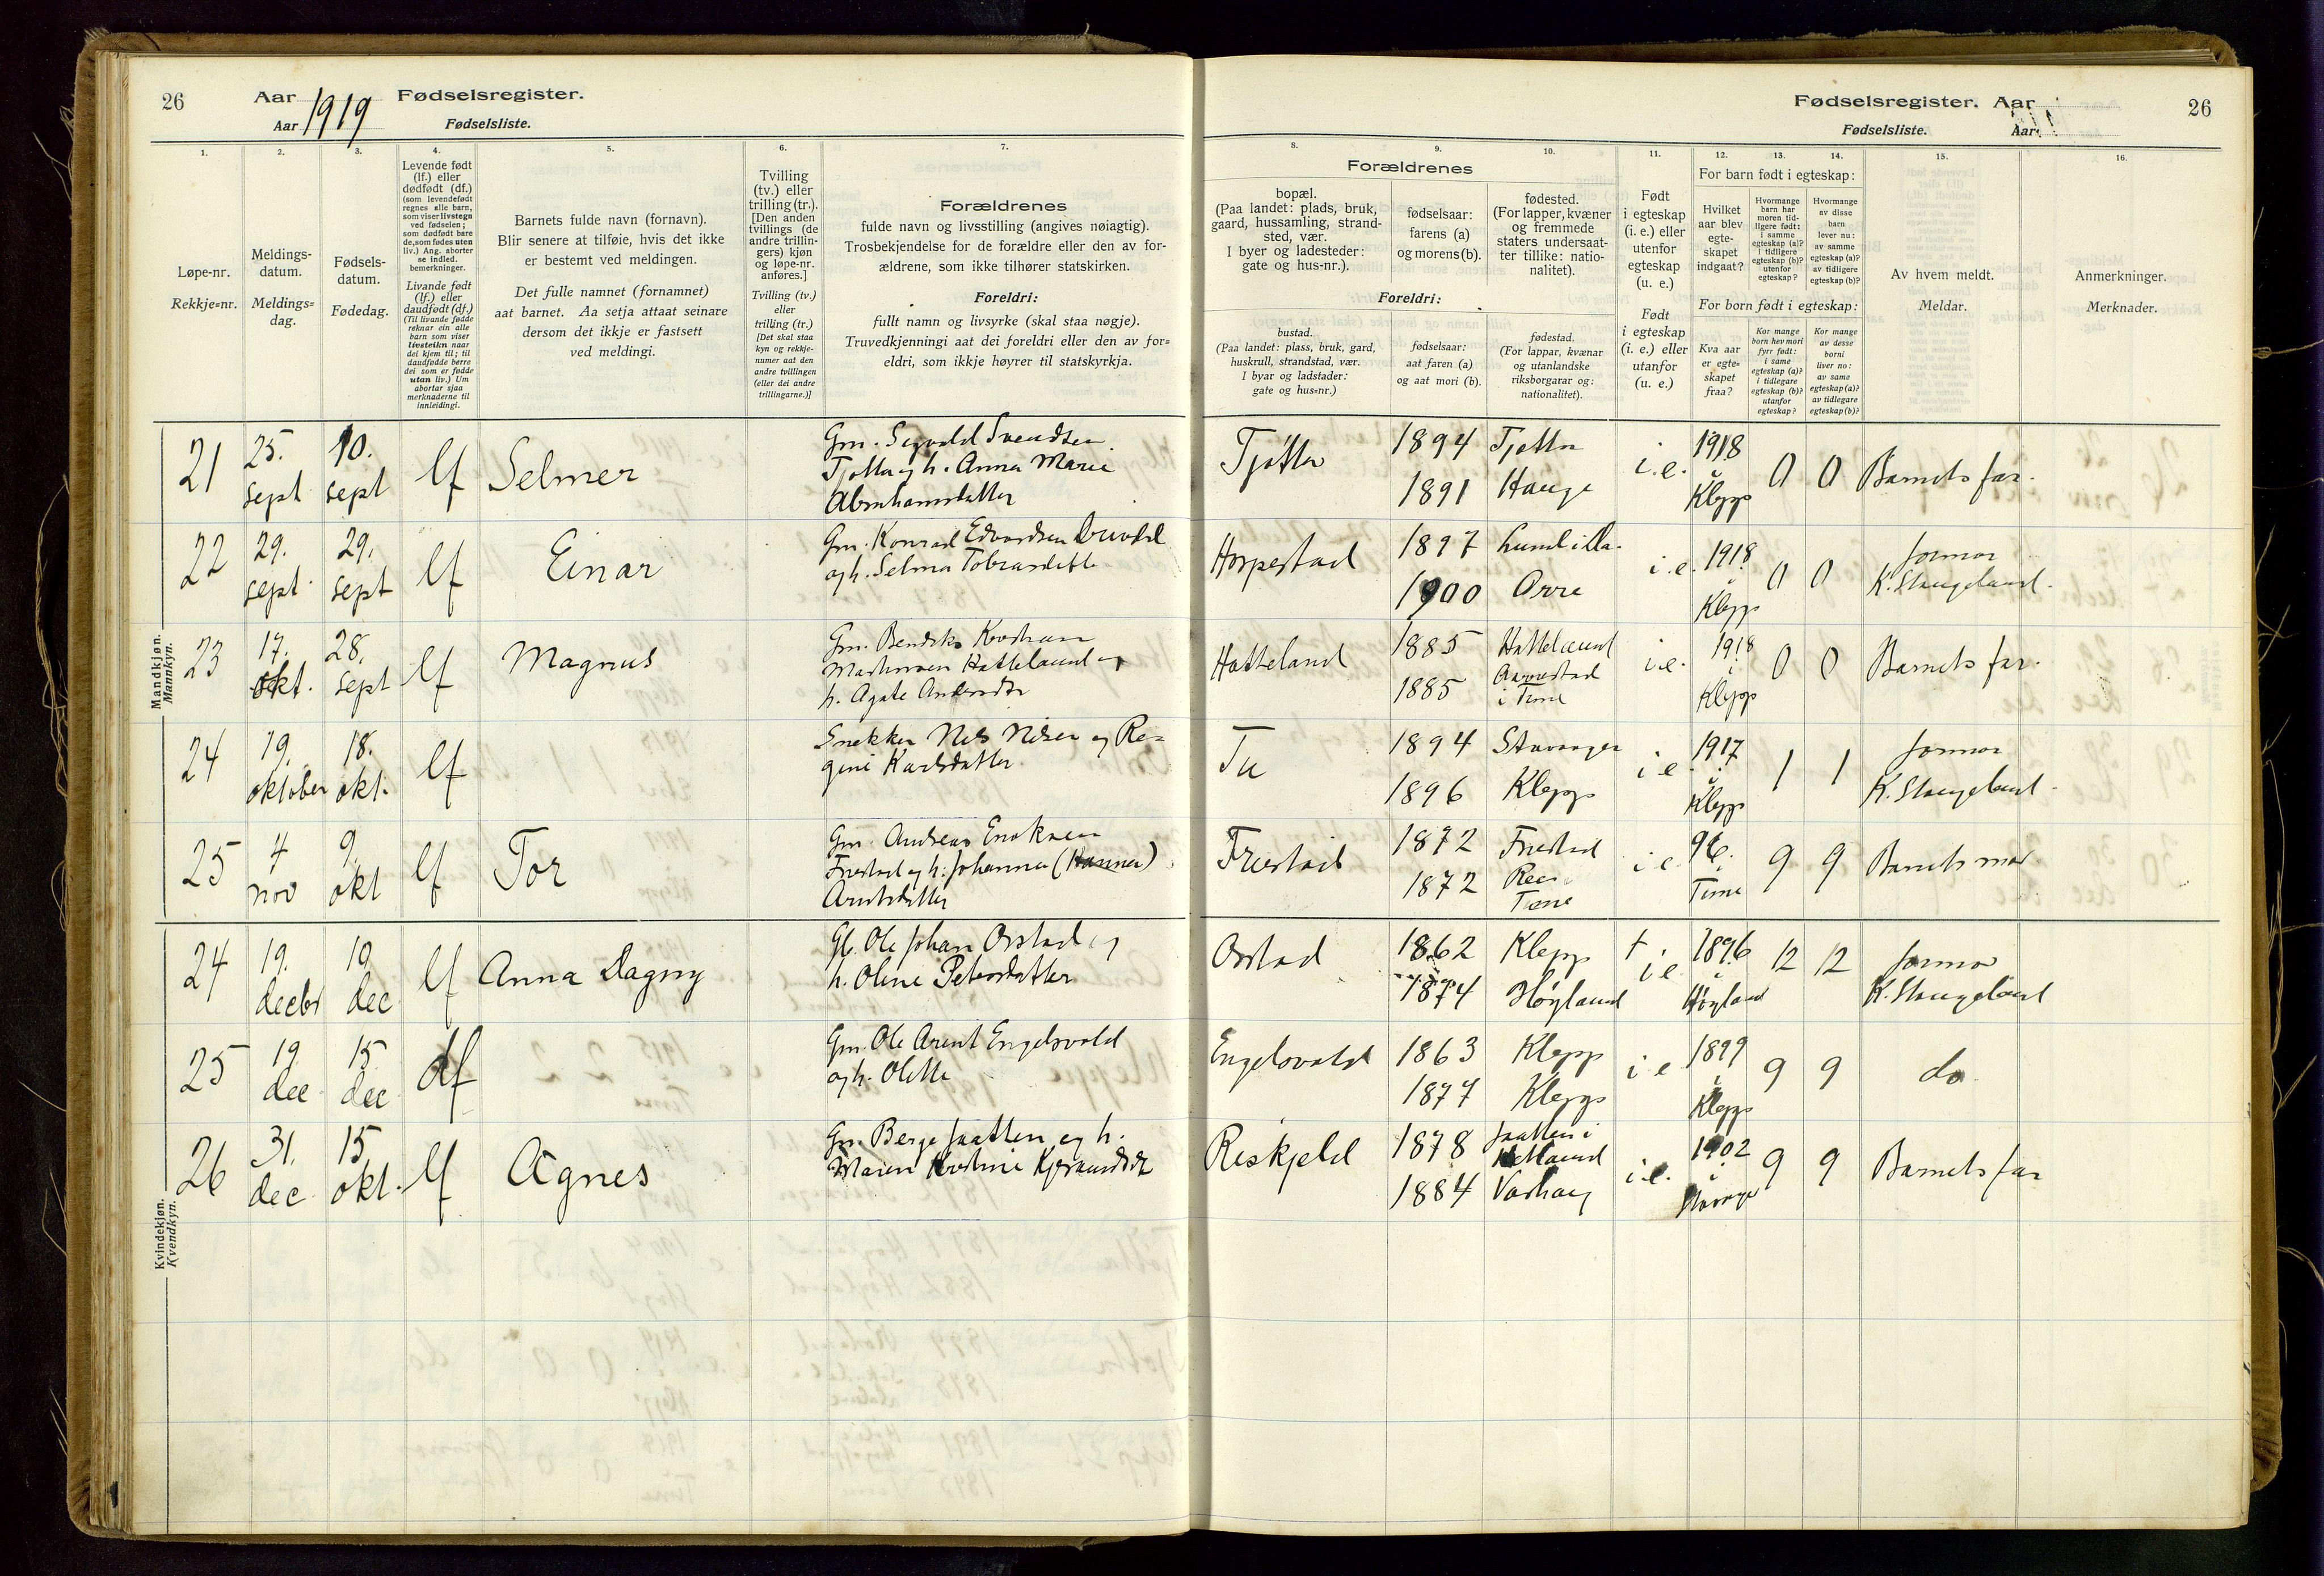 26
Aar 1919 Fødselsregister.
Aar Fødselsliste.
1. 2. 3. 4. 5. 6. 7.
Løpe-nr.
Rekkje=nr.
Meldings-
datum.
Meldings=
dag.
Fødsels-
datum.
Fødedag.
Levende født
(lf.) eller
dødfødt (df.)
(som levendefødt
regnes alle barn,
som viser livstegn
ved fødselen;
som dødfødt bare
de, som fødes uten
liv.) Ang. aborter
se indled.
bemerkninger.
Livande født
(lf.) eller
daudfødt (df.)
(Til livande fødde
reknar ein alle
barn som viser
livsteikn naar
dei kjem til; til
daudfødde berre
dei som er fødde
utan liv.) Um
abortar sjaa
merknaderne til
innleidingi.
Barnets fulde navn (fornavn).
Blir senere at tilføie, hvis det ikke
er bestemt ved meldingen.
Det fulle namnet (fornamnet)
aat barnet. Aa setja attaat seinare
dersom det ikkje er fastsett
ved meldingi.
Tvilling
(tv.) eller
trilling (tr.).
[Den anden
tvillings (de
andre trillin-
gers) kjøn
og løpe-nr.
anføres.]
Tvilling (tv.)
eller
trilling (tr.)
[Det skal staa
kyn og rekkje-
numer aat den
andre tvillingen
(eller dei andre
trillingarne.)]
Forældrenes
fulde navn og livsstilling (angives nøiagtig).
Trosbekjendelse for de forældre eller den av for-
ældrene, som ikke tilhører statskirken.
Foreldri:
fullt namn og livsyrke (skal staa nøgje).
Truvedkjenningi aat dei foreldri eller den av for=
eldri, som ikkje høyrer til statskyrkja.
Mandkjøn.
Mannkyn.
21 25. sept 10. sept lf Selmer
Gm. Sigvald Svendsen
Tjøtta og h. Anna Marie
Abrahamsdatter
22 29. sept. 29. sept lf Einar
Gm. Konrad Edvardsen
og h. Selma
23 17. okt. 28. sept lf Magnus
Gm.
Hatteland og
h. Agate
24 19. oktober 18. okt. lf
Snekker Nils Nilsen og Re=
gine Karlsdatter
25 4 nov 9. okt lf Tor
Gm. Andreas
Friestad og h. Johanna (Hanna)
Kvindekjøn.
Kvendkyn.
24 19. decbr 19 dec lf Anna Dagny
Gb. Ole Johan Orstad og
h. Oline Petersdatter
25 19 dec 15 dec df
Gm. Ole Arent Engelsvold
og h. Olette
26 31. dec 15 okt. lf Agnes
Gm. Berge Jaatten og h.
Maren
Fødselsregister. Aar 26
Fødselsliste. Aar
8. 9. 10. 11. 12. 13. 14. 15. 16.
Forældrenes
bopæl.
(Paa landet: plads, bruk,
gaard, hussamling, strand-
sted, vær.
I byer og ladesteder:
gate og hus-nr.).
fødselsaar:
farens (a)
og morens (b).
fødested.
(For lapper, kvæner
og fremmede
staters undersaat-
ter tillike: natio-
nalitet).
Foreldri:
bustad.
(Paa landet: plass, bruk, gard,
huskrull, strandstad, vær.
I byar og ladstader:
gate og hus=nr.)
fødselsaar:
aat faren (a)
og aat mori (b).
fødestad.
(For lappar, kvænar
og utanlandske
riksborgarar og:
nationalitet).
Født
i egteskap
(i. e.) eller
utenfor
egteskap
(u. e.)
Født
i egteskap
(i. e.) eller
utanfor
(u. e.)
For barn født i egteskap:
Hvilket
aar blev
egte-
skapet
indgaat?
Hvormange
barn har
moren tid-
ligere født:
i samme
egteskap (a)?
i tidligere
egteskap (b)?
utenfor
egteskap?
Hvormange
av disse
barn
lever nu:
av samme
egteskap (a)?
av tidligere
egteskap (b)?
For born født i egteskap:
Kva aar
er egte=
skapet
fraa?
Kor mange
born hev mori
fyrr født:
i same
egteskap (a)?
i tidlegare
egteskap (b)?
utanfor
egteskap?
Kor mange
av desse
borni
liver no:
av same
egteskap (a)?
av tidlegare
egteskap (b)?
Av hvem meldt.
Meldar.
Anmerkninger.
Merknader.
Tjøtta 1894 Tjøtta i.e. 1918 i Klepp 0 0 Barnets far.
1891 Hauge
Horpestad 1897 i.e. 1918 i Klepp 0 0 Jormor
1900 Orre K. Stangeland.
Hatteland 1885 Hatteland i.e. 1918 i Klepp 0 0 Barnets far.
1885
i Time
Tu 1894 Stavanger i.e. 1917 i Klepp 1 1 Jormor
1896 Klepp K. Stangeland.
Friestad 1872 Friestad i e 96. i Time 9 9 Barnets mor
1872
Time
Orstad 1862 Klepp + i e 1896 i Høyland 12 12 Jormor
1874 Høyland K. Stangeland
Engelsvold 1863 Klepp i e 1899 i Klepp 9 9 do
1877 Klepp
Reskjeld 1878 Jaatten i
Hetland i.e. 1902 i 9 9 Barnets far
1884 Varhaug